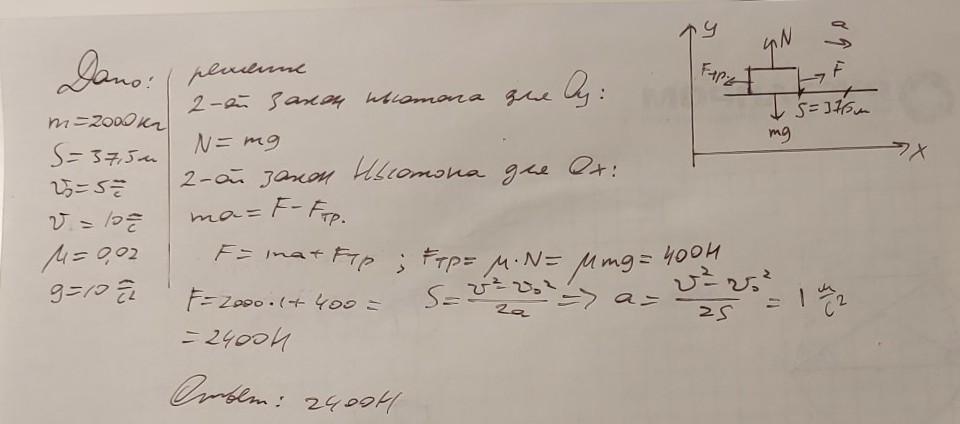 Дано:
m=2000кг
S=37,5м
v₀=5м/с
v=10м/с
μ=0,02
g=10м/с²
решение
2-ой закон Ньютона для Oy:
N=mg
2-ой закон Ньютона для Ox:
ma=F-Fтр.
F=ma+Fтр ; Fтр=μ·N=μmg=400Н
F=2000·1+400= S=(v²-v₀²)/2a => a=(v²-v₀²)/2S=1 м/с²
=2400Н
Ответ: 2400Н
y
a
N
Fтр.
F
S=37,5м
mg
x